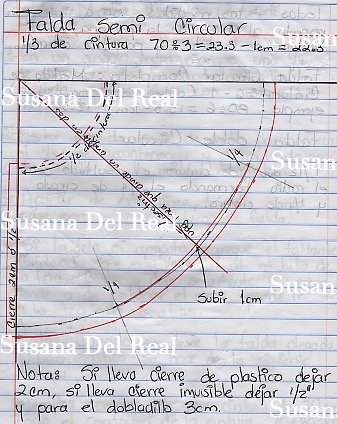 Falda Semi Circular
1/3 de cintura 70÷3=23.3 - 1cm = 22.3
Susana Del Real
Susana
1/2 cintura
1/4
Susan
Susana Del Real
Cierre 2cm o 1/2"
1/4
Subir 1cm
Susana
Susana Del Real
Nota: Si lleva cierre de plastico dejar
2cm, si lleva cierre invisible dejar 1/2"
y para el dobladillo 3cm.
Susana